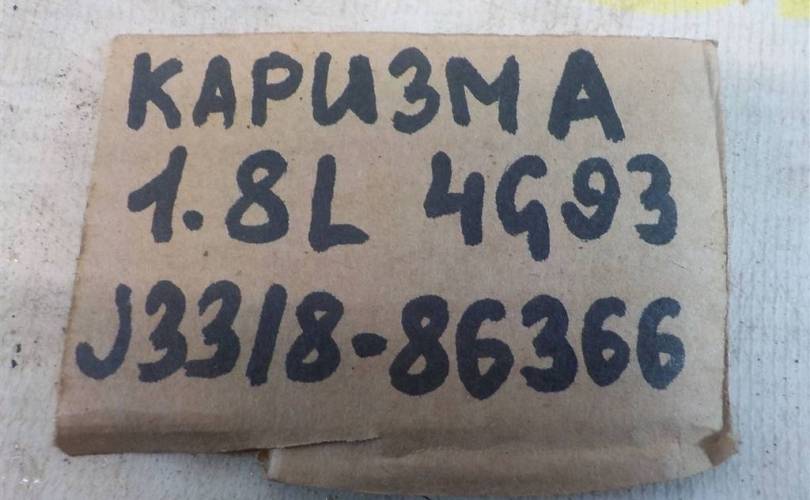 КАРИЗМА
1.8L 4G93
J33/8-86366